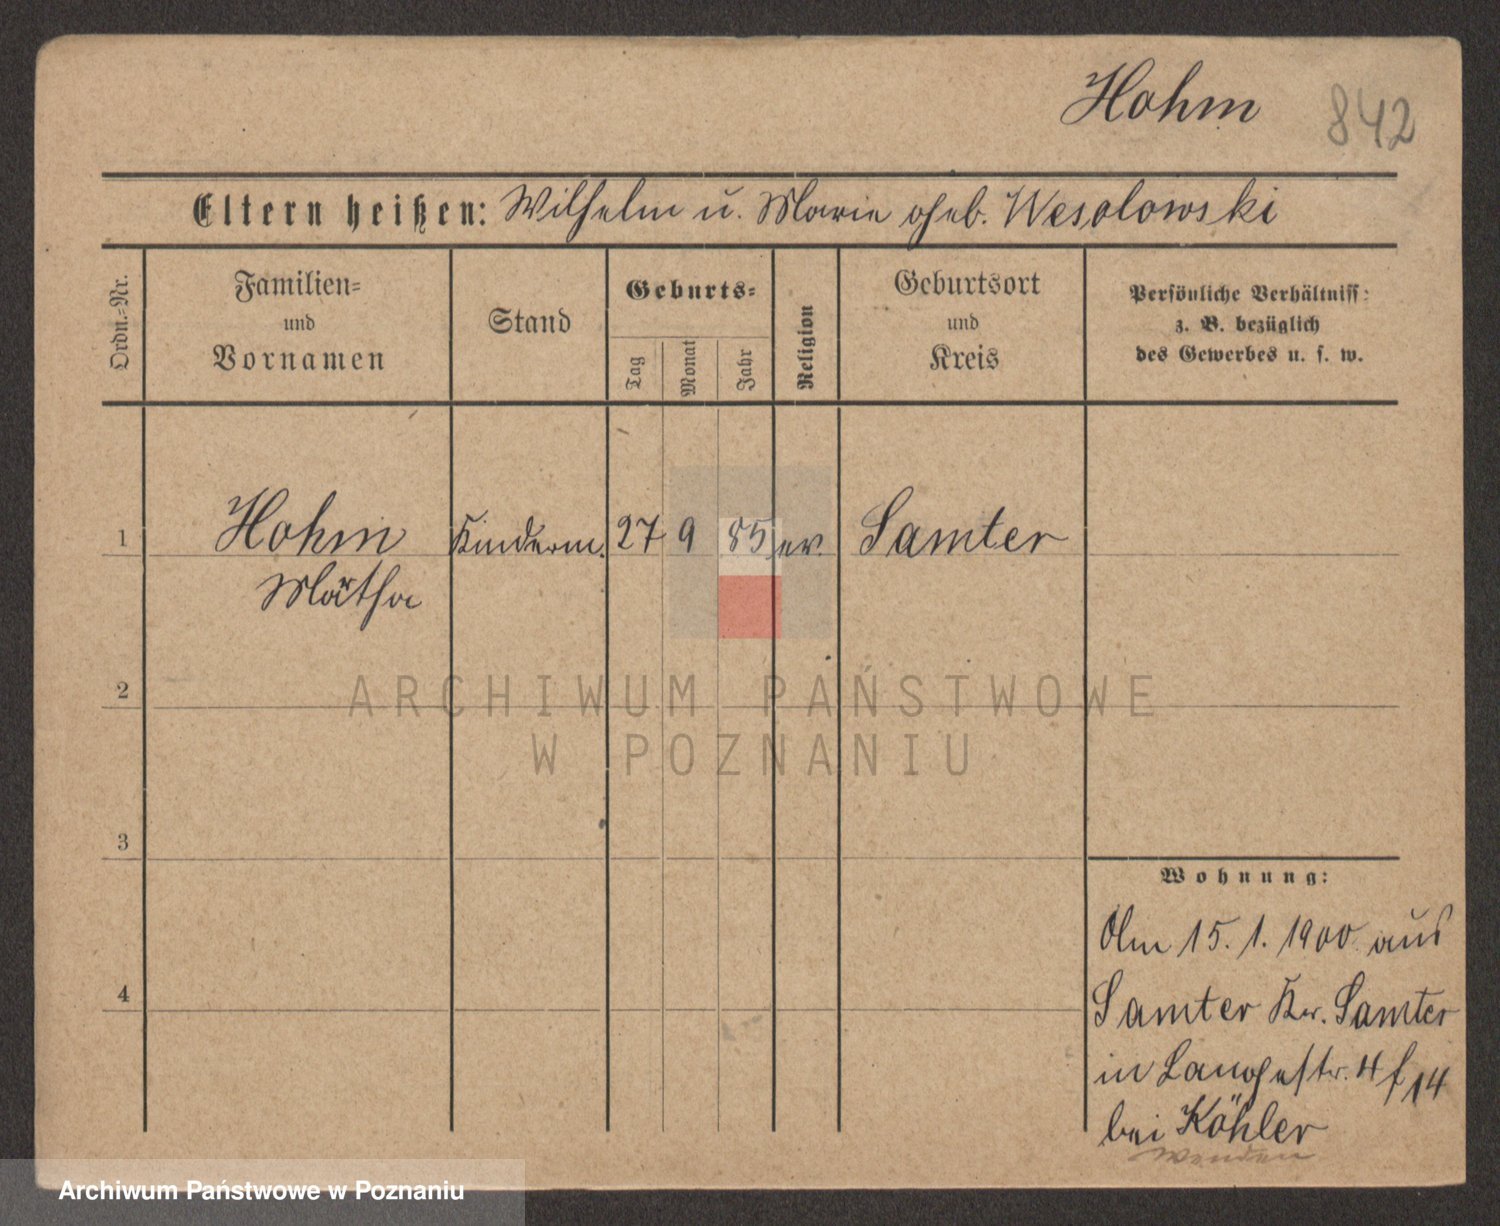 Hohm 842
Eltern heißen: Wilhelm u. Marie geb. Wesolowski
Ordn.-Nr.
Familien-
und
Vornamen
Stand
Geburts-
Tag
Monat
Jahr
Religion
Geburtsort
und
Kreis
Persönliche Verhältniss:
z. B. bezüglich
des Gewerbes u. s. w.
1 Hohm Kinderm. 27 9 85 ev. Samter
Martha
2
ARCHIWUM PAŃSTWOWE
W POZNANIU
3
Wohnung:
Am 15. 1. 1900 aus
4
Samter Kr. Samter
in Langestr. 4 14
bei Köhler
Wenden
Archiwum Państwowe w Poznaniu